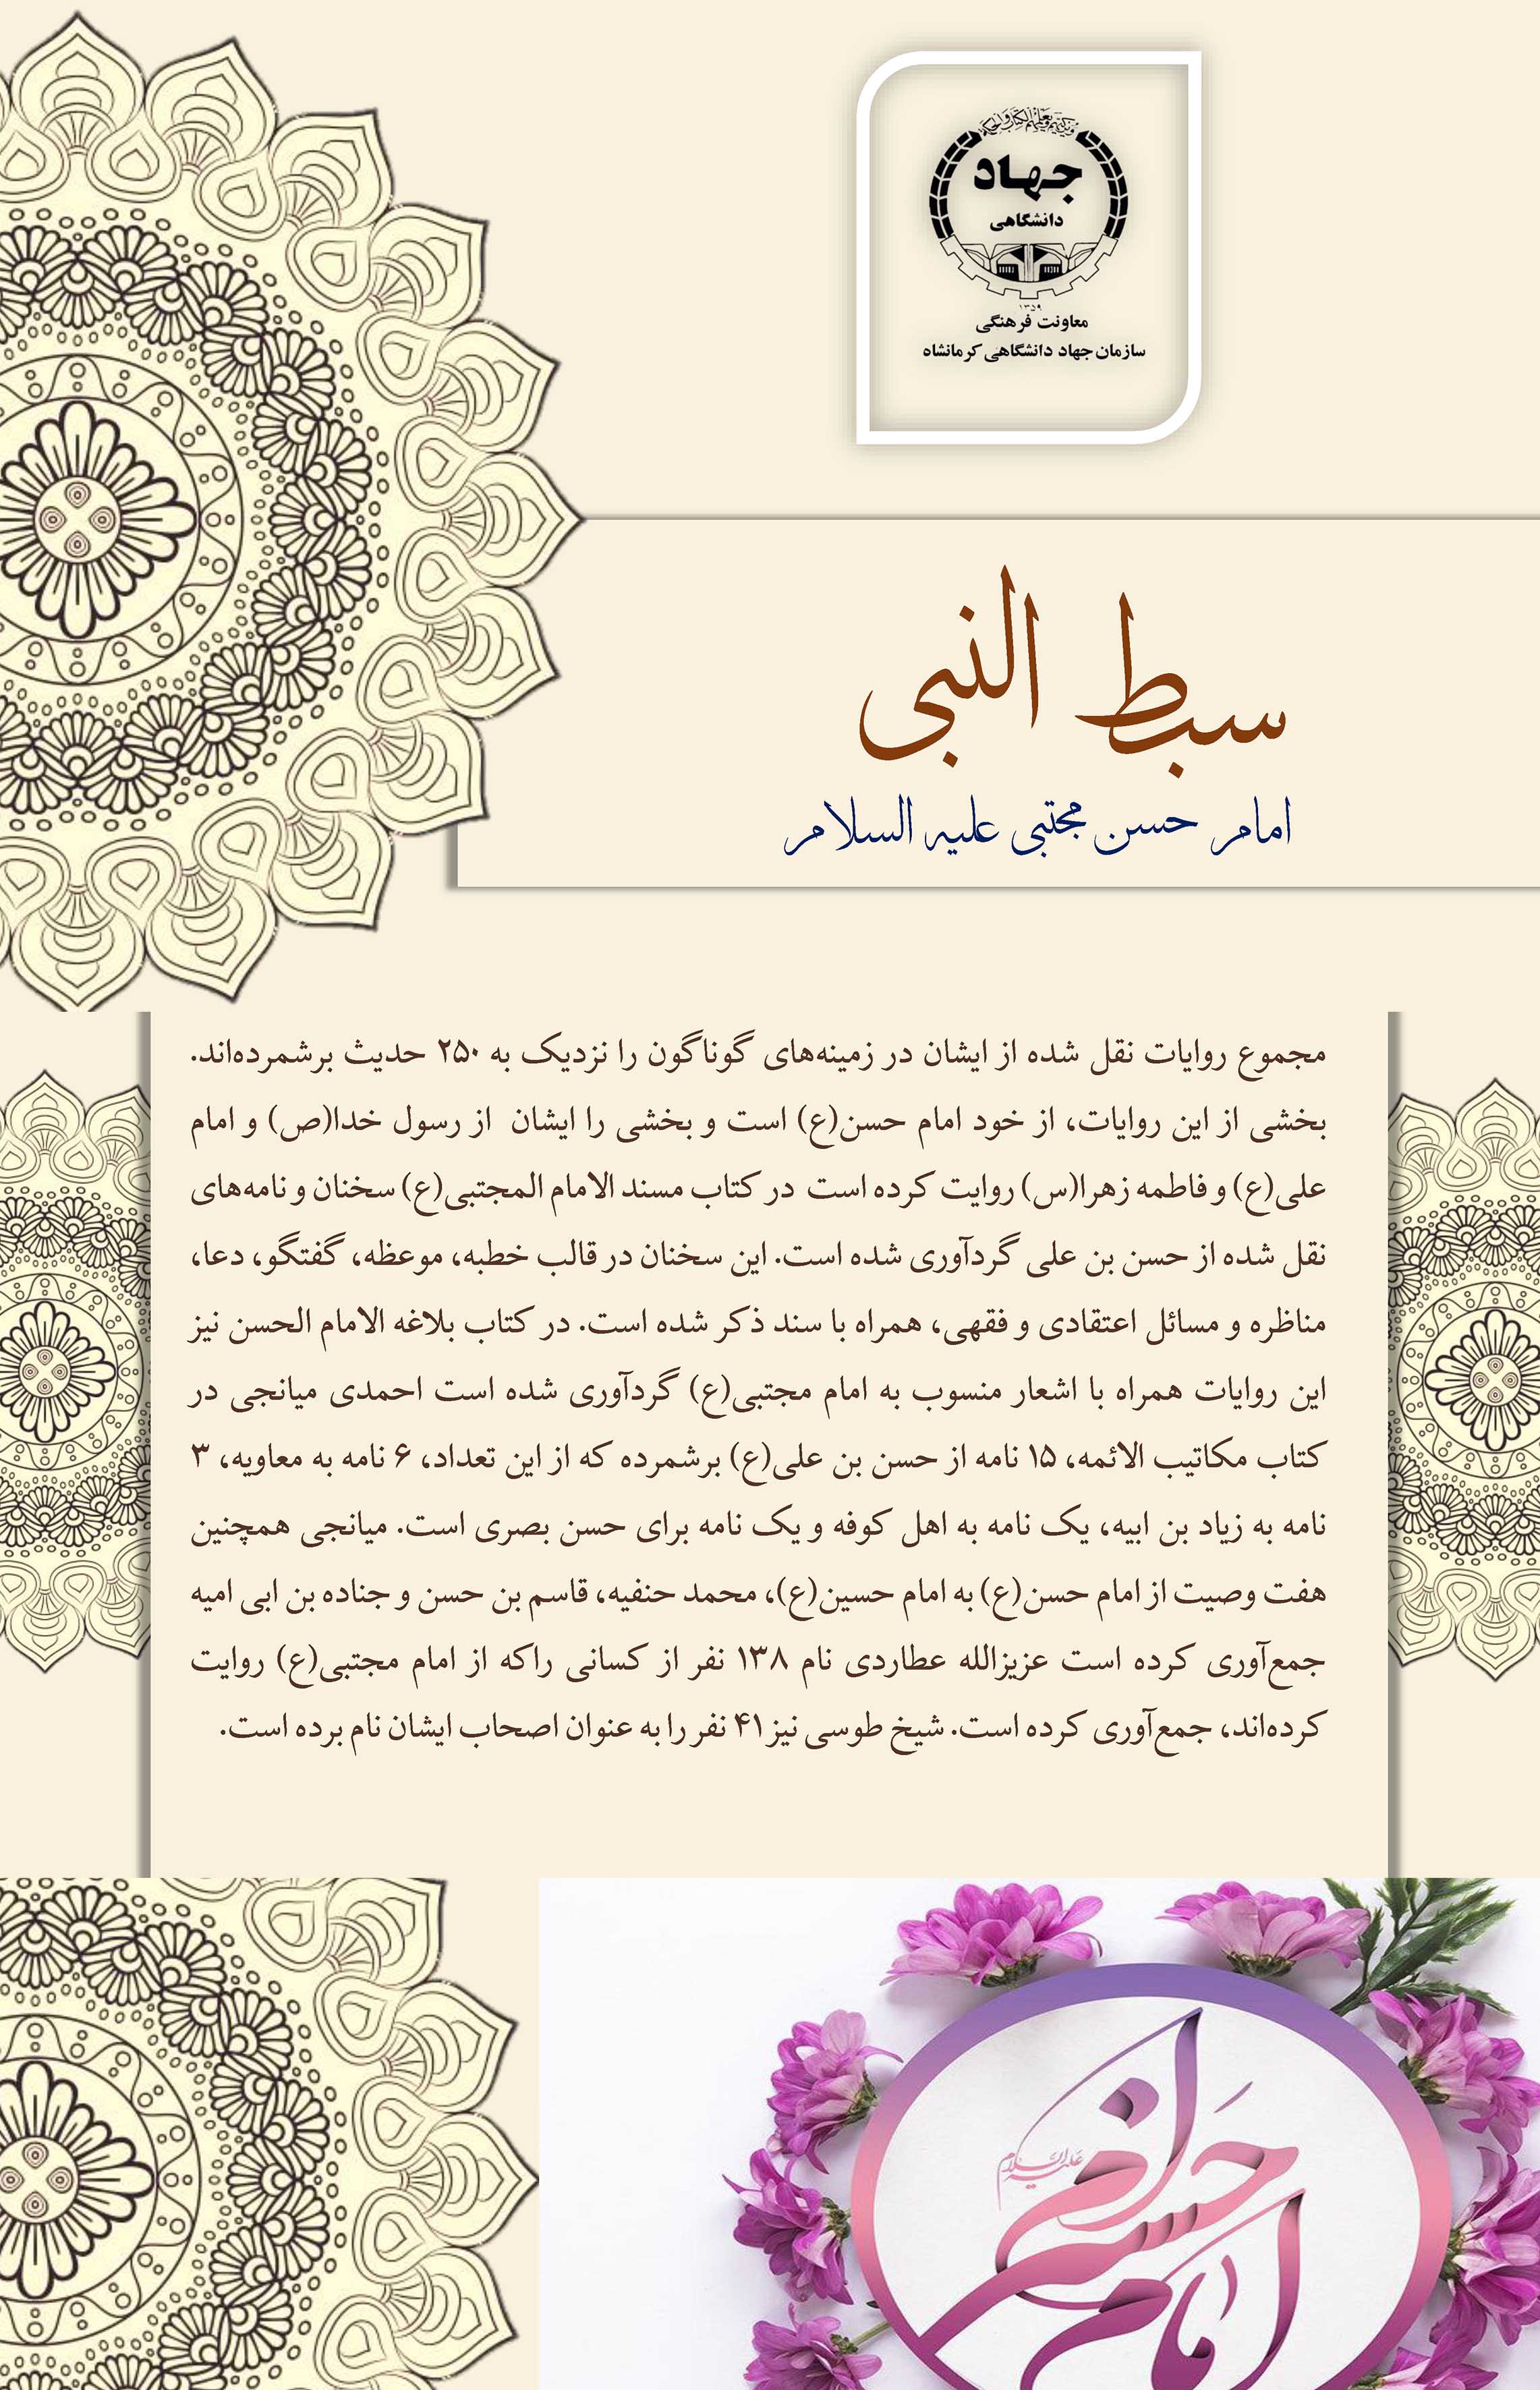 جهاد
دانشگاهی
۱۳۵۹
معاونت فرهنگی
سازمان جهاد دانشگاهی کرمانشاه
سبط النبی
امام حسن مجتبی علیه السلام
مجموع روایات نقل شده از ایشان در زمینه‌های گوناگون را نزدیک به ۲۵۰ حدیث برشمرده‌اند.
بخشی از این روایات، از خود امام حسن(ع) است و بخشی را ایشان از رسول خدا(ص) و امام
علی(ع) و فاطمه زهرا(س) روایت کرده است در کتاب مسند الامام المجتبی(ع) سخنان و نامه‌های
نقل شده از حسن بن علی گردآوری شده است. این سخنان در قالب خطبه، موعظه، گفتگو، دعا،
مناظره و مسائل اعتقادی و فقهی، همراه با سند ذکر شده است. در کتاب بلاغه الامام الحسن نیز
این روایات همراه با اشعار منسوب به امام مجتبی(ع) گردآوری شده است احمدی میانجی در
کتاب مکاتیب الائمه، ۱۵ نامه از حسن بن علی(ع) برشمرده که از این تعداد، ۶ نامه به معاویه، ۳
نامه به زیاد بن ابیه، یک نامه به اهل کوفه و یک نامه برای حسن بصری است. میانجی همچنین
هفت وصیت از امام حسن(ع) به امام حسین(ع)، محمد حنفیه، قاسم بن حسن و جناده بن ابی امیه
جمع‌آوری کرده است عزیزالله عطاردی نام ۱۳۸ نفر از کسانی راکه از امام مجتبی(ع) روایت
کرده‌اند، جمع‌آوری کرده است. شیخ طوسی نیز ۴۱ نفر را به عنوان اصحاب ایشان نام برده است.
علیه السلام
امام حسن